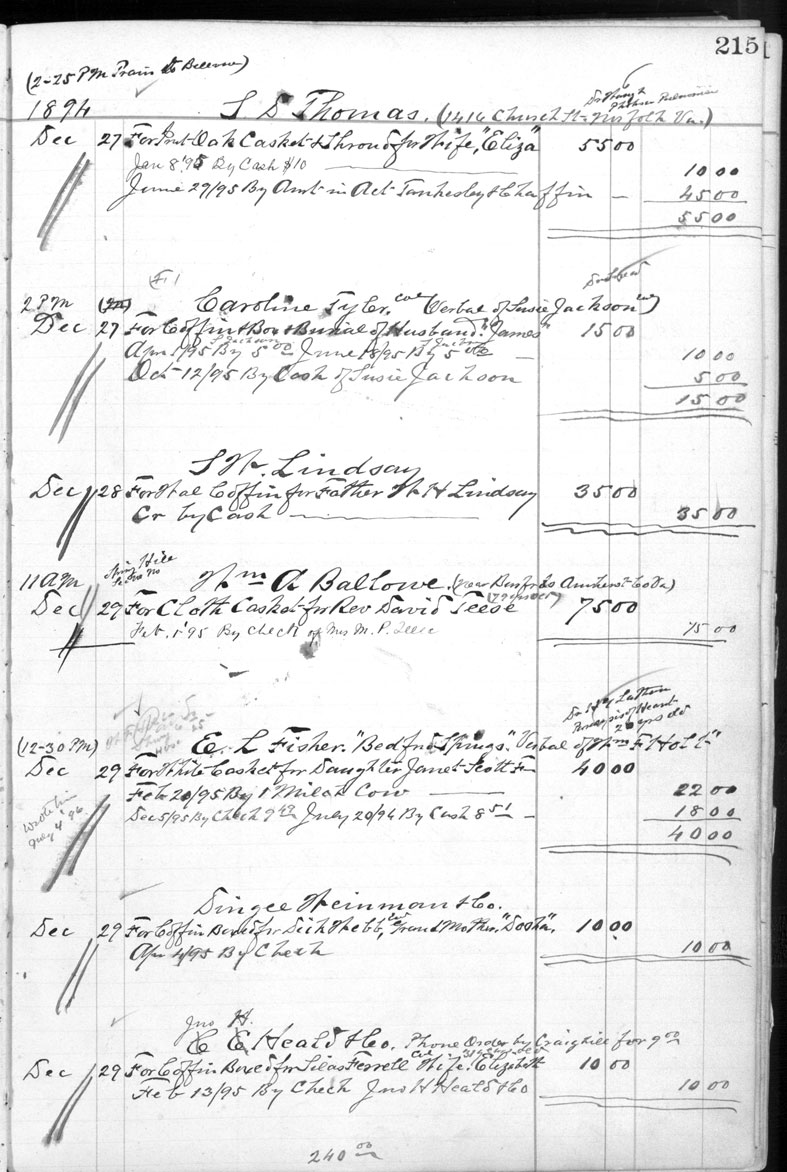 215
(2-25 PM Train to
1894 S D Thomas. (1414 Church St- Norfolk Va.)
Dec 27 For Oak Casket & Shroud for Wife, "Eliza" 55 00
Jan 8 '95 By Cash $10 10 00
June 29/95 By Amt in Act Tankesley & Chaffin - 45 00
55 00
2 PM Caroline Tyler, col Verbal of Susie Jackson col)
Dec 27 For Coffin & Box & Burial of Husband. "James" 15 00
Apr 1/95 By 5 00 June 18/95 By 5 00 - 10 00
Oct 12/95 By Cash of Susie Jackson 5 00
15 00
S W. Lindsay
Dec 28 For Wal Coffin for Father W H Lindsay 35 00
Cr by Cash 35 00
Spring Hill
11 AM Wm A Ballowe. (near Amherst Co Va)
Dec 29 For Cloth Casket for Rev David Teese 75 00
Feb. 1 '95 By Check of Mrs M. P. Teese 75 00
Dr Latham
of Heart
(12-30 PM) E. L Fisher. "Bedford Springs". Verbal of Holt"
Dec 29 For White Casket for Daughter Janet Scott F 40 00
Feb 20/95 By 1 Milch Cow 22 00
Dec 5/95 By Check 9 49 July 20/96 By Cash 8 51 - 18 00
40 00
Wrote him
July 4 '96
Dingee Weinman & Co.
Dec 29 For Coffin Boxed for Dick Webb, col Grand Mother. "Dosha", 10 00
Apr 4/95 By Check 10 00
Jno H.
C E Heald & Co. Phone Order by Craighill for 9 00
Dec 29 For Coffin Boxed for Silas Ferrell col Wife. Elizabeth 10 00
Feb 13/95 By Check Jno H Heald & Co 10 00
240 00